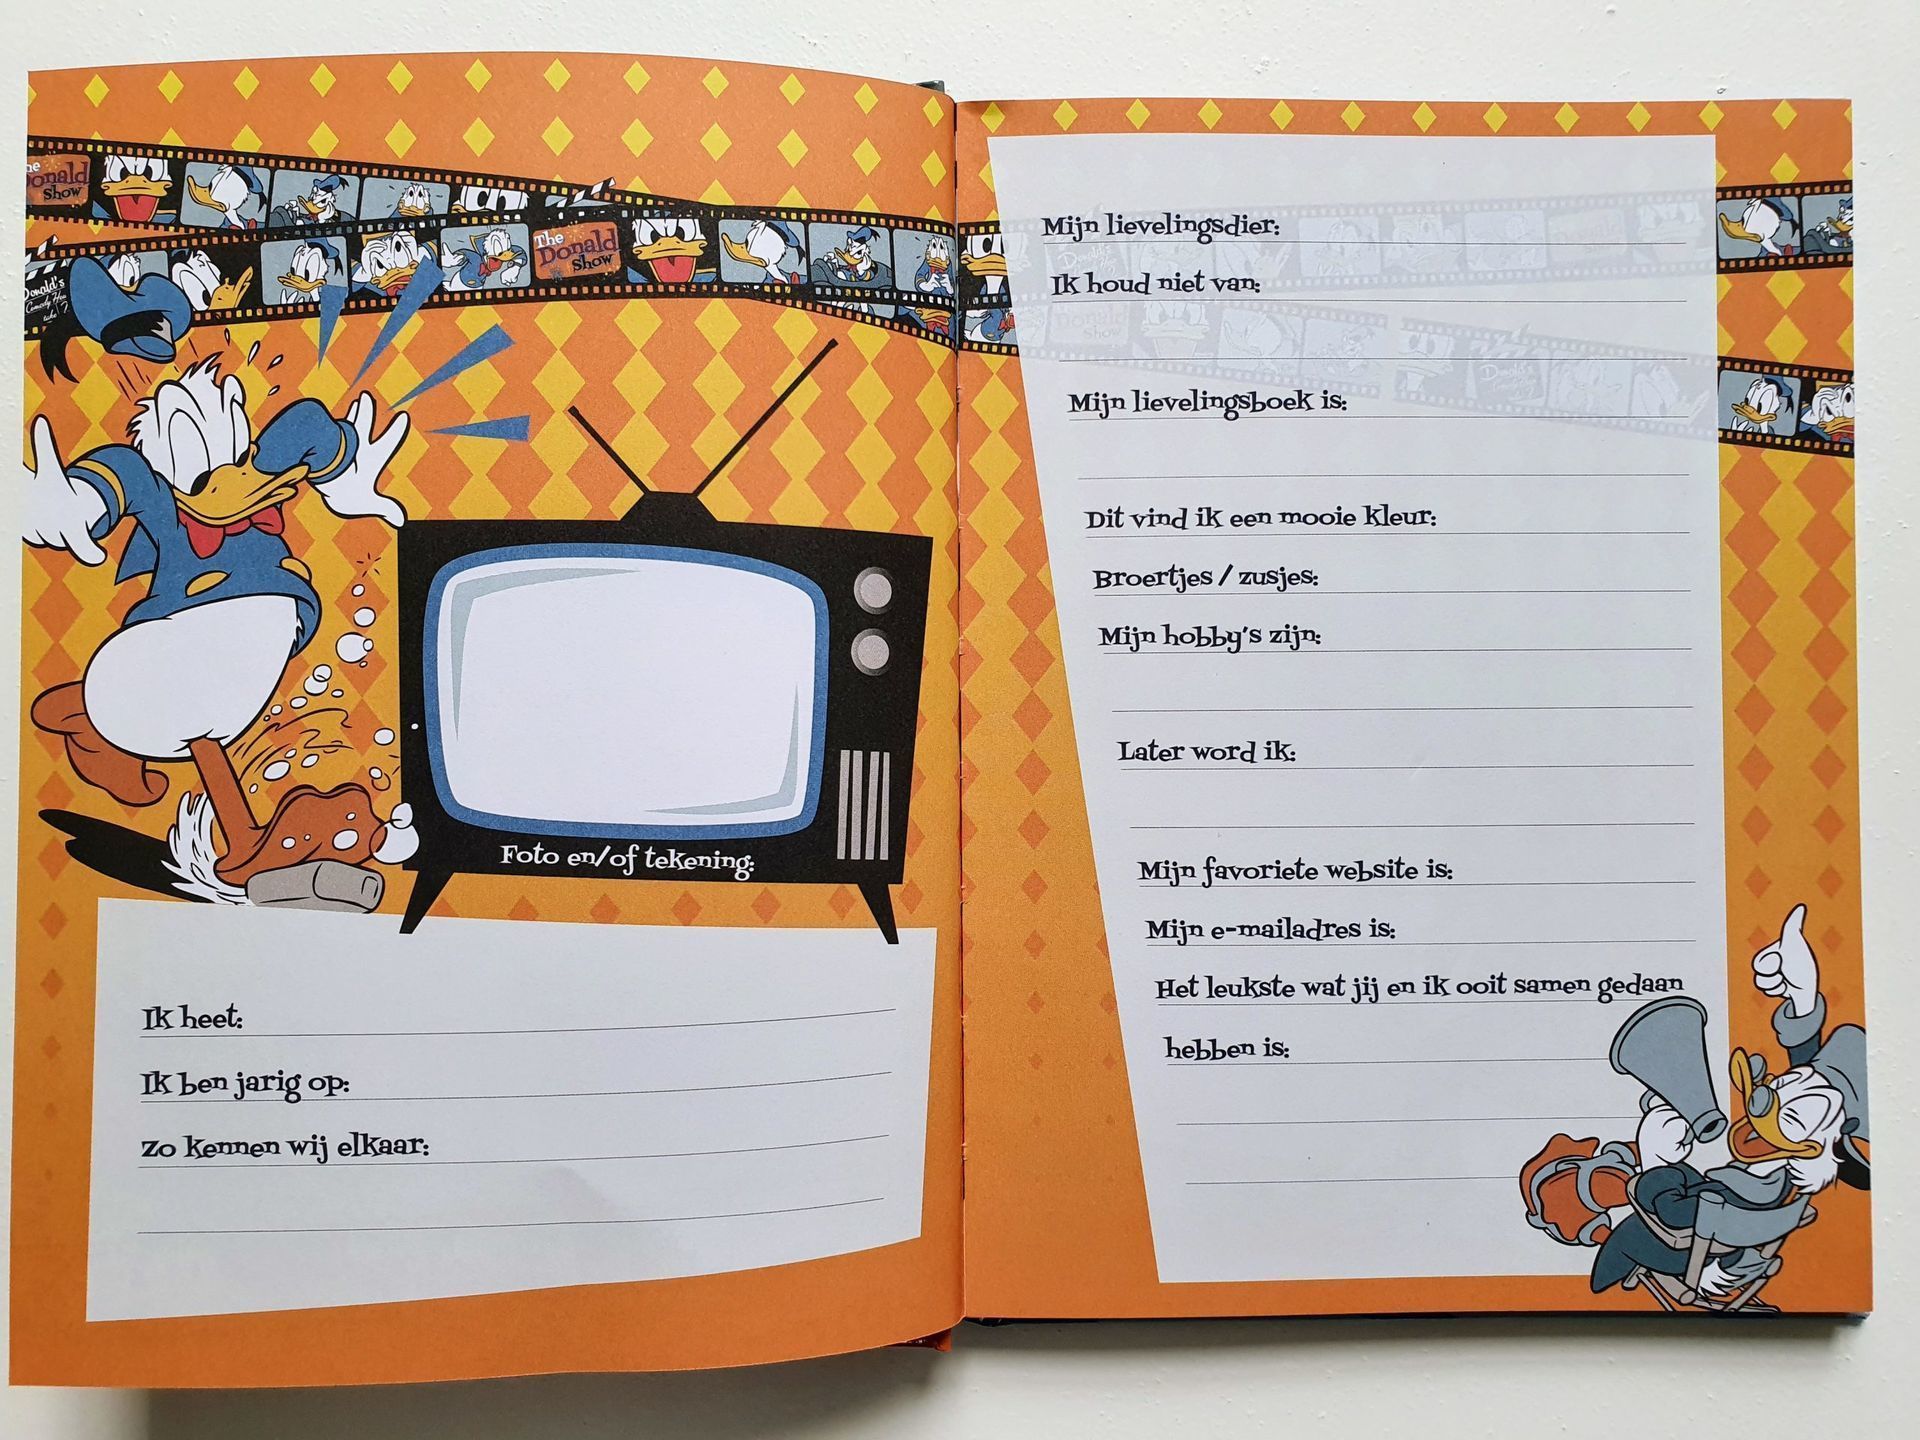 The
Donald
Show
The
Donald
Show
Donald's
Comedy Hour
take 7
Foto en/of tekening:
Ik heet:
Ik ben jarig op:
Zo kennen wij elkaar:
Mijn lievelingsdier:
Ik houd niet van:
Mijn lievelingsboek is:
Dit vind ik een mooie kleur:
Broertjes / zusjes:
Mijn hobby's zijn:
Later word ik:
Mijn favoriete website is:
Mijn e-mailadres is:
Het leukste wat jij en ik ooit samen gedaan
hebben is: